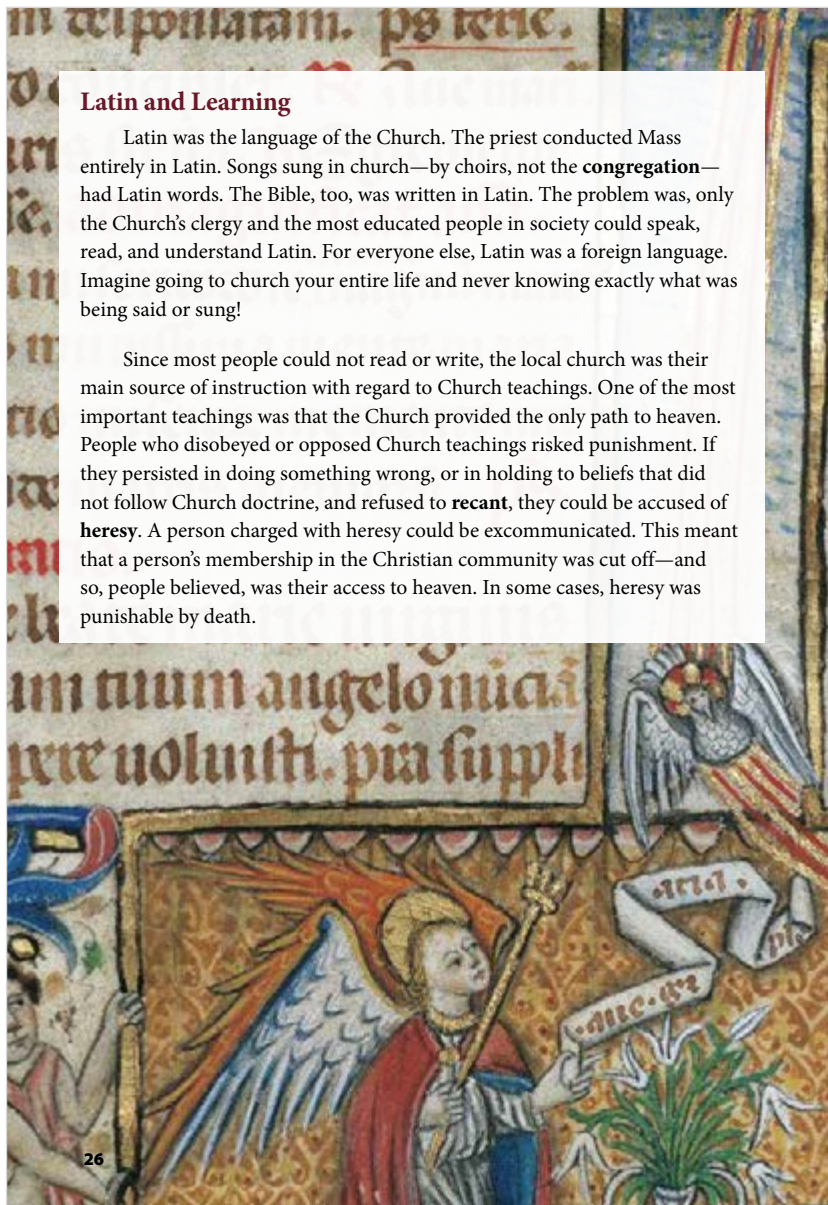 ps
Latin and Learning
Latin was the language of the Church. The priest conducted Mass
entirely in Latin. Songs sung in church—by choirs, not the congregation—
had Latin words. The Bible, too, was written in Latin. The problem was, only
the Church’s clergy and the most educated people in society could speak,
read, and understand Latin. For everyone else, Latin was a foreign language.
Imagine going to church your entire life and never knowing exactly what was
being said or sung!
Since most people could not read or write, the local church was their
main source of instruction with regard to Church teachings. One of the most
important teachings was that the Church provided the only path to heaven.
People who disobeyed or opposed Church teachings risked punishment. If
they persisted in doing something wrong, or in holding to beliefs that did
not follow Church doctrine, and refused to recant, they could be accused of
heresy. A person charged with heresy could be excommunicated. This meant
that a person’s membership in the Christian community was cut off—and
so, people believed, was their access to heaven. In some cases, heresy was
punishable by death.
um tuum angelo
uoluisti. suppli
26